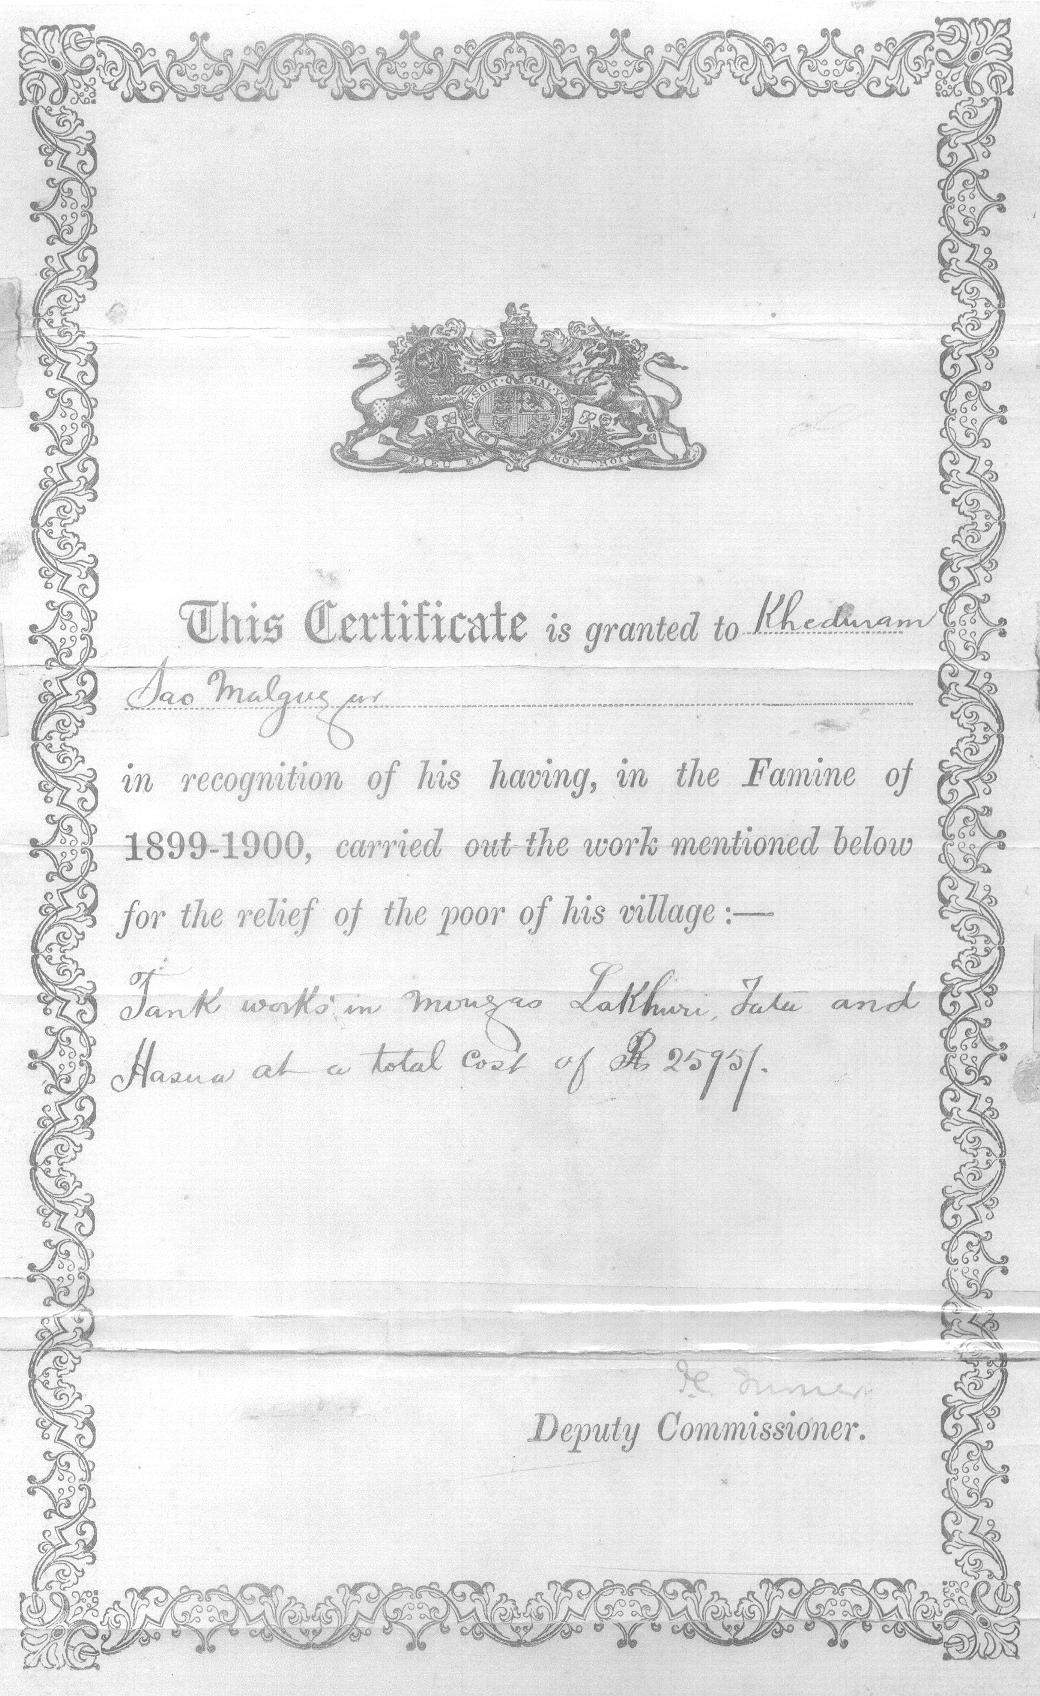 HONI·SOIT·QUI·MAL·Y·PENSE
DIEU ET MON DROIT
This Certificate is granted to Kheduram
Sao Malguzar
in recognition of his having, in the Famine of
1899-1900, carried out the work mentioned below
for the relief of the poor of his village :—
Tank works in mouzas Lakhuri, and
Hasua at a total cost of Rs 2595/.
Deputy Commissioner.